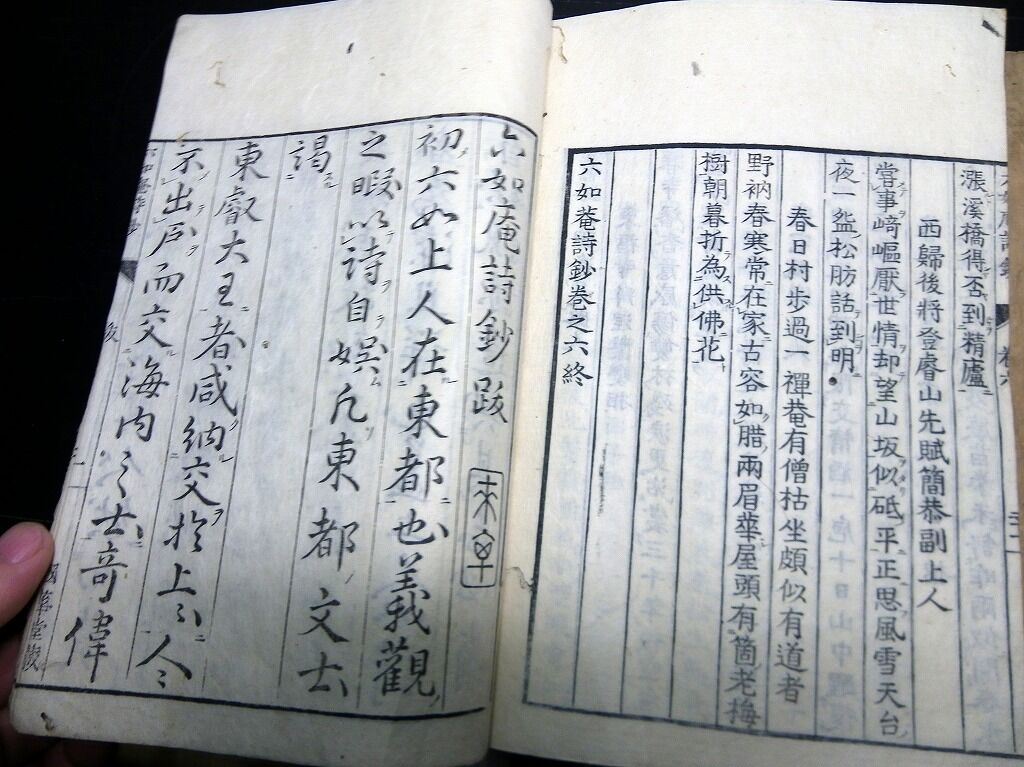 漲溪橋得否到精廬
西歸後將登睿山先賦簡恭副上人
嘗事﨑嶇厭世情却望山坂似砥平正思風雪天台
夜一盌松肪話到明
春日村歩過一禪菴有僧枯坐頗似有道者
野衲春寒常在家古容如腊兩眉華屋頭有箇老梅
樹朝暮折為供佛花
六如菴詩鈔卷之六終
六如庵詩鈔跋
初六如上人在東都也義觀
之暇以詩自娯凡東都文士
謁
東叡大王者咸納交於上人人
京出處而交海内之士奇偉